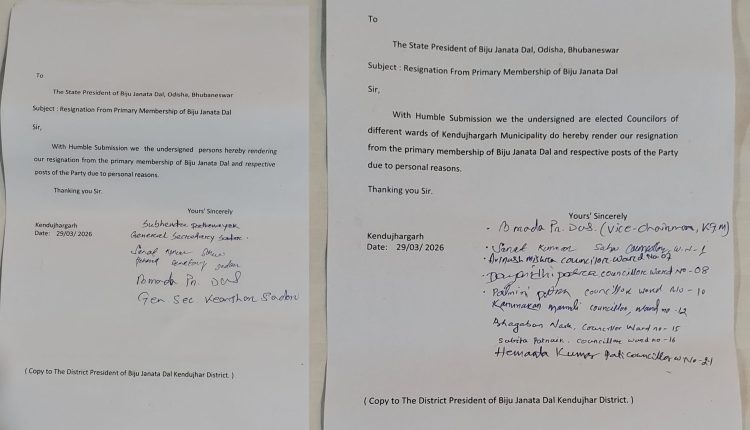 To
The State President of Biju Janata Dal, Odisha, Bhubaneswar
Subject : Resignation From Primary Membership of Biju Janata Dal
Sir,
With Humble Submission we the undersigned persons hereby rendering
our resignation from the primary membership of Biju Janata Dal and respective
posts of the Party due to personal reasons.
Thanking you Sir.
Yours' Sincerely
Kendujhargarh
Date: 29/03/ 2026
General Secretary Sadar.
Pramada Pn. DAS
Gen Sec. Keonjhar Sadar
( Copy to The District President of Biju Janata Dal Kendujhar District. )
To
The State President of Biju Janata Dal, Odisha, Bhubaneswar
Subject : Resignation From Primary Membership of Biju Janata Dal
Sir,
With Humble Submission we the undersigned are elected Councilors of
different wards of Kendujhargarh Municipality do hereby render our resignation
from the primary membership of Biju Janata Dal and respective posts of the Party
due to personal reasons.
Thanking you Sir.
Yours' Sincerely
Kendujhargarh
Date: 29/03/ 2026
Pramada Pn. DAS. (Vice-Chairman, KJM)
Sanat Kumar Sahu Councillor W.N-1
Avinash Mishra councilor ward No 07
councillor ward No-08
councillor ward No-10
councillor, ward no-12
Bhagaban Naik, Councillor Ward no-15
Patnaik. councillor ward no-16
Hemanta Kumar Pati councillor W No-21
( Copy to The District President of Biju Janata Dal Kendujhar District. )